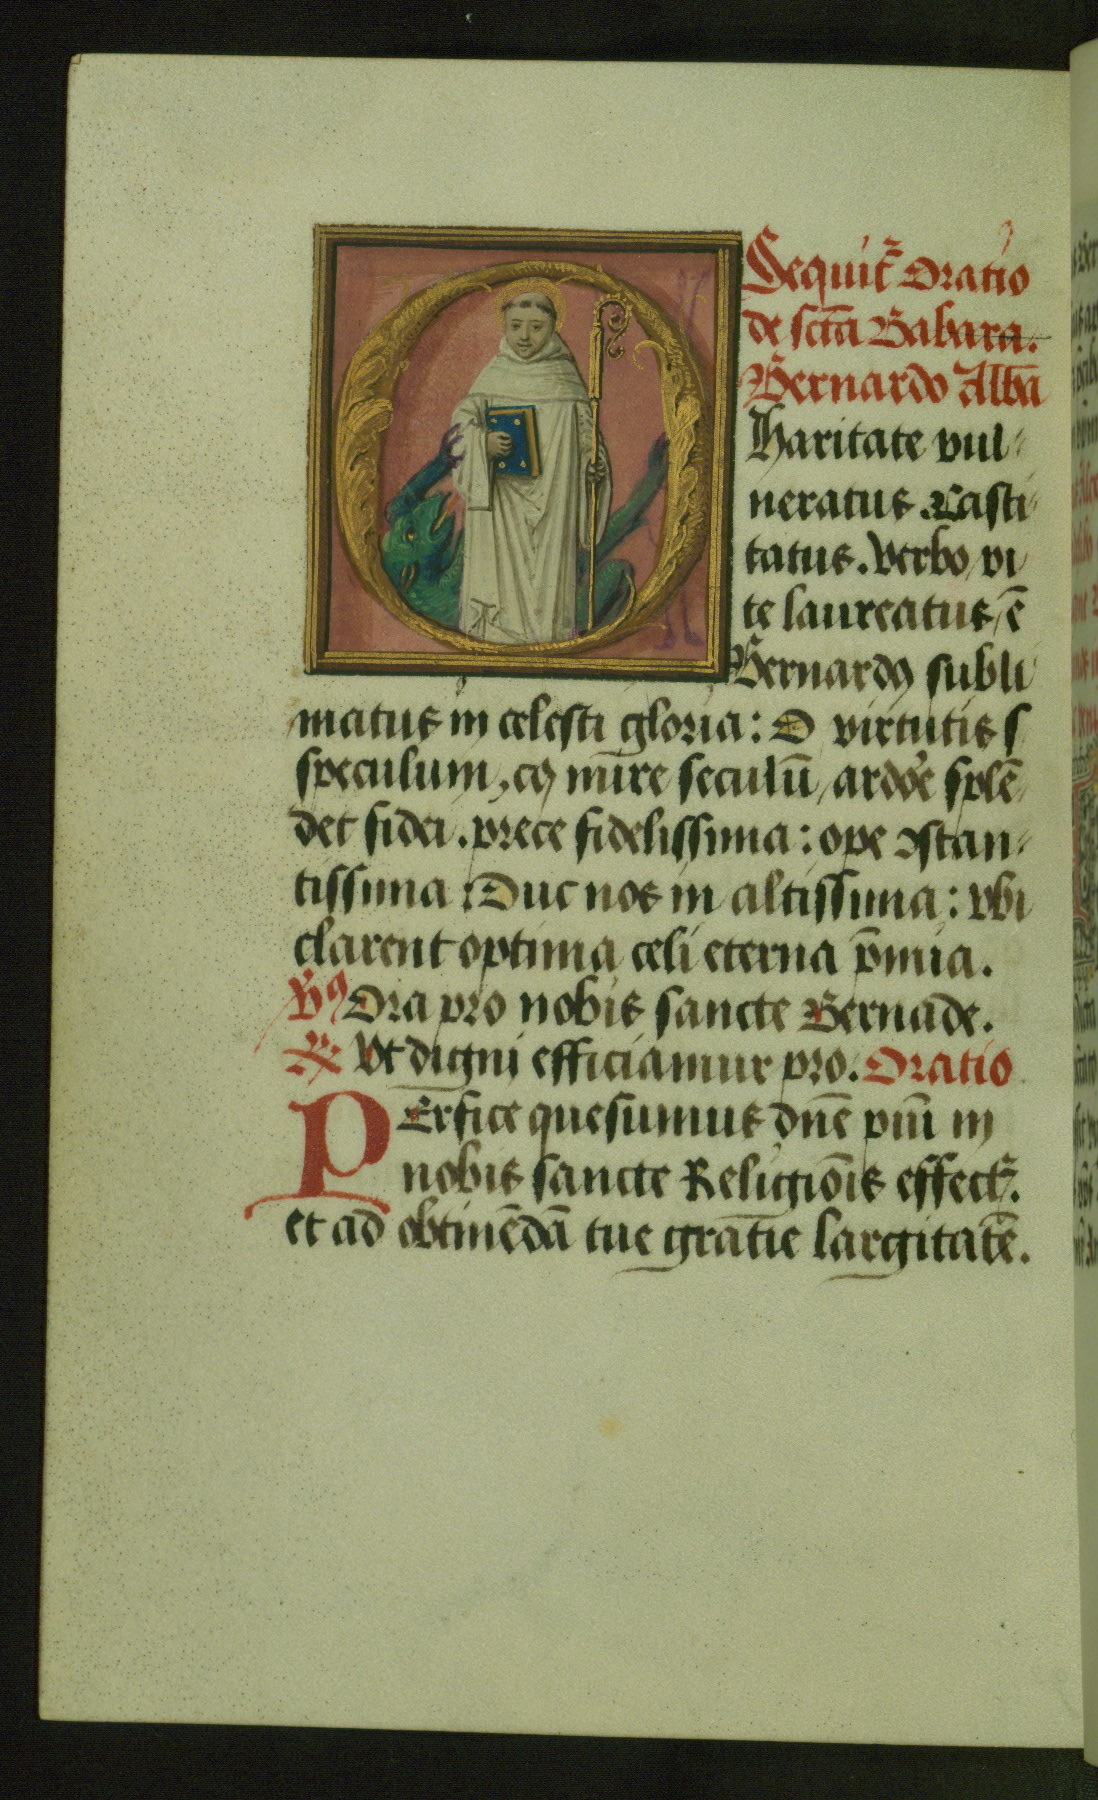 Sequit᷑ Oratio
de sctā Babara.
Bernardo Albā
haritate vul-
neratus . Casti-
tatus . verbo vi
te laureatus / ē
Bernardꝰ subli
matus in celesti gloria : O virtutis s
speculum , cꝰ mūre seculū / ardōe splē-
det fidei . prece fidelissima : ope ꝯstan-
tissima : Duc nos in altissima : vbi
clarent optima celi eterna p̄mia .
Ora pro nobis sancte Bernade .
℟ Vt digni efficiamur pro . Oratio
PErfice quesumus dn̄e piū in
nobis sancte Religiōis effect᷑ .
et ad obtinēdā tue gratie largitatē .